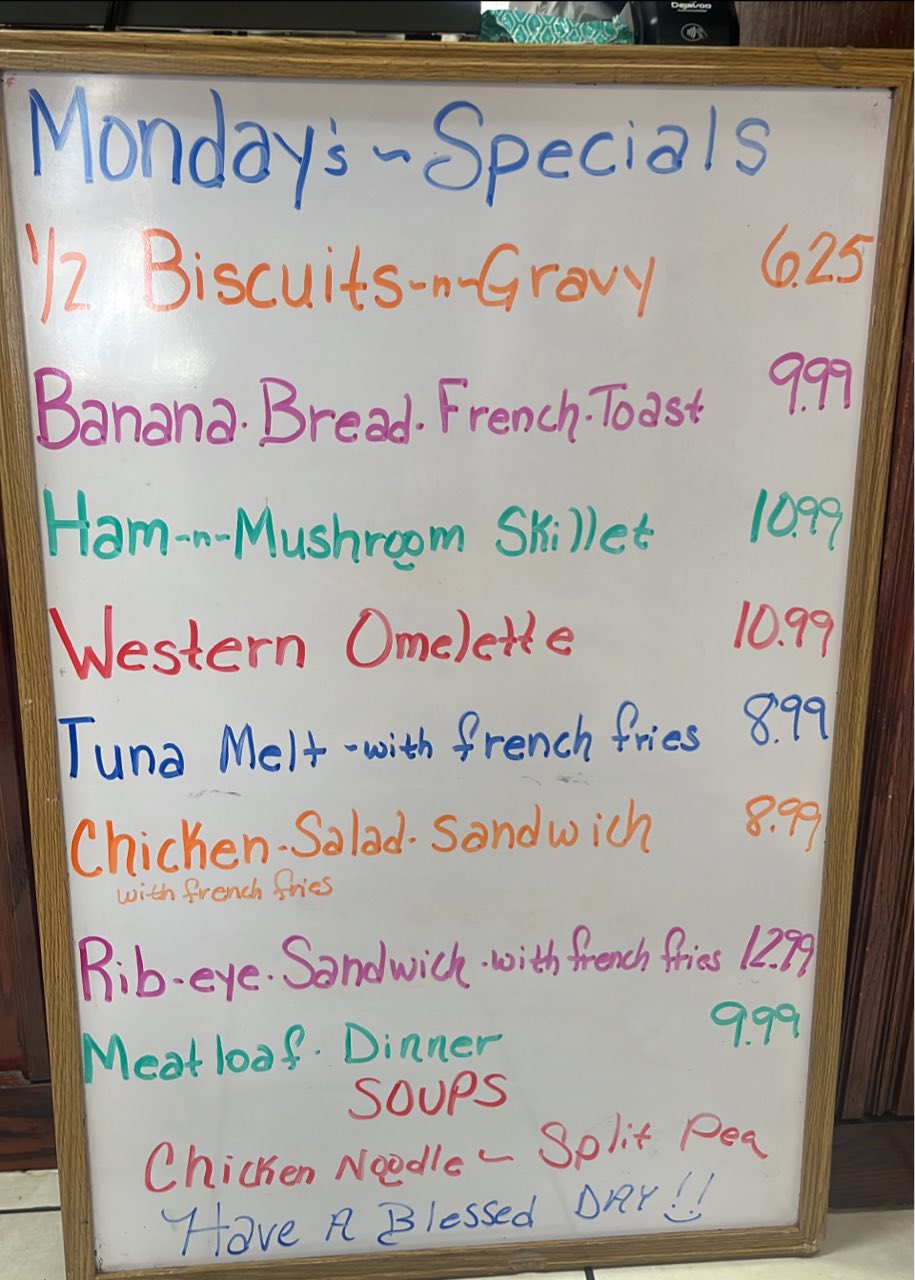 Dejavoo
Monday's ~ Specials
1/2 Biscuits-n-Gravy 6.25
Banana. Bread. French. Toast 9.99
Ham-n-Mushroom Skillet 10.99
Western Omelette 10.99
Tuna Melt -with french fries 8.99
Chicken-Salad. Sandwich 8.99
with french fries
Rib-eye. Sandwich .with french fries 12.99
Meatloaf. Dinner 9.99
SOUPS
Chicken Noodle ~ Split Pea
Have A Blessed DAY!!